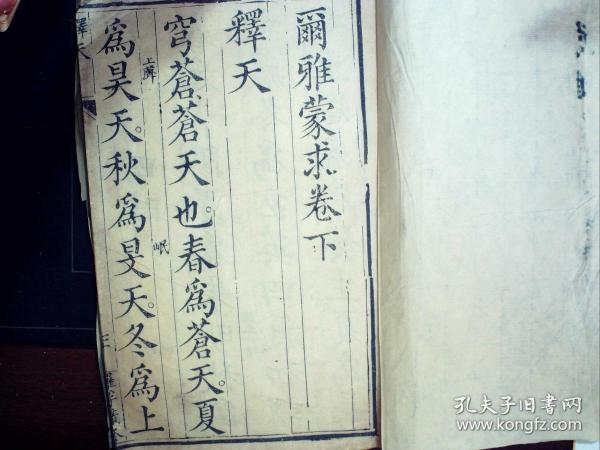 爾雅蒙求卷下
釋天
穹蒼蒼天也。春爲蒼天。夏
爲昊天。秋爲旻天。冬爲上
上聲
岷
釋天
孔夫子旧书网
www.kongfz.com